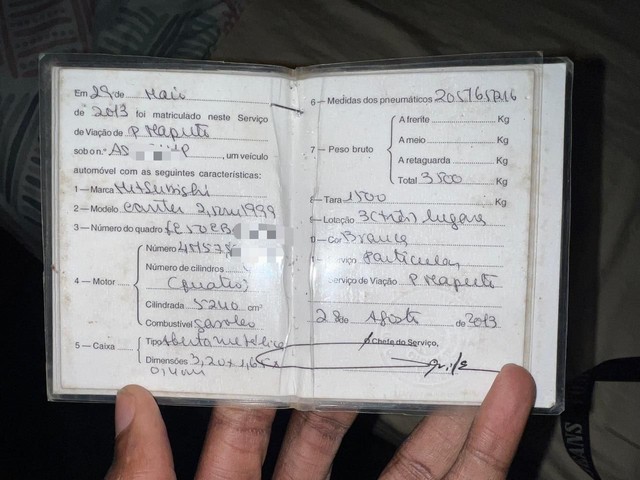 Em 29 de Maio
de 2013 foi matriculado neste Serviço
de Viação de P Maputo
sob o n.º AS , um veículo
automóvel com as seguintes características:
1 — Marca Mitsubishi
2 — Modelo canter 1999
3 — Número do quadro
4 — Motor
Número
Número de cilindros
(quatro)
Cilindrada 5240 cm³
Combustível gasoleo
5 — Caixa
Tipo Aberta metálica
Dimensões 3,20 x
6 — Medidas dos pneumáticos 205/65R16
7 — Peso bruto
A frente Kg
A meio Kg
A retaguarda Kg
Total 3500 Kg
Tara 1500 Kg
Lotação 3 (três) lugares
Cor Branca
Serviço Particular
Serviço de Viação P Maputo
28 de Agosto de 2013
O Chefe do Serviço,
VANS